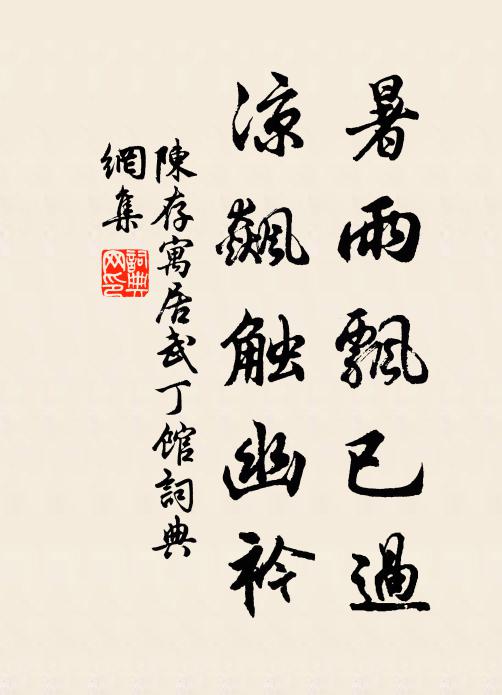 暑雨飄已過
涼飆觸幽衿
陳存寓居武丁館詞典
網集
詞典网印